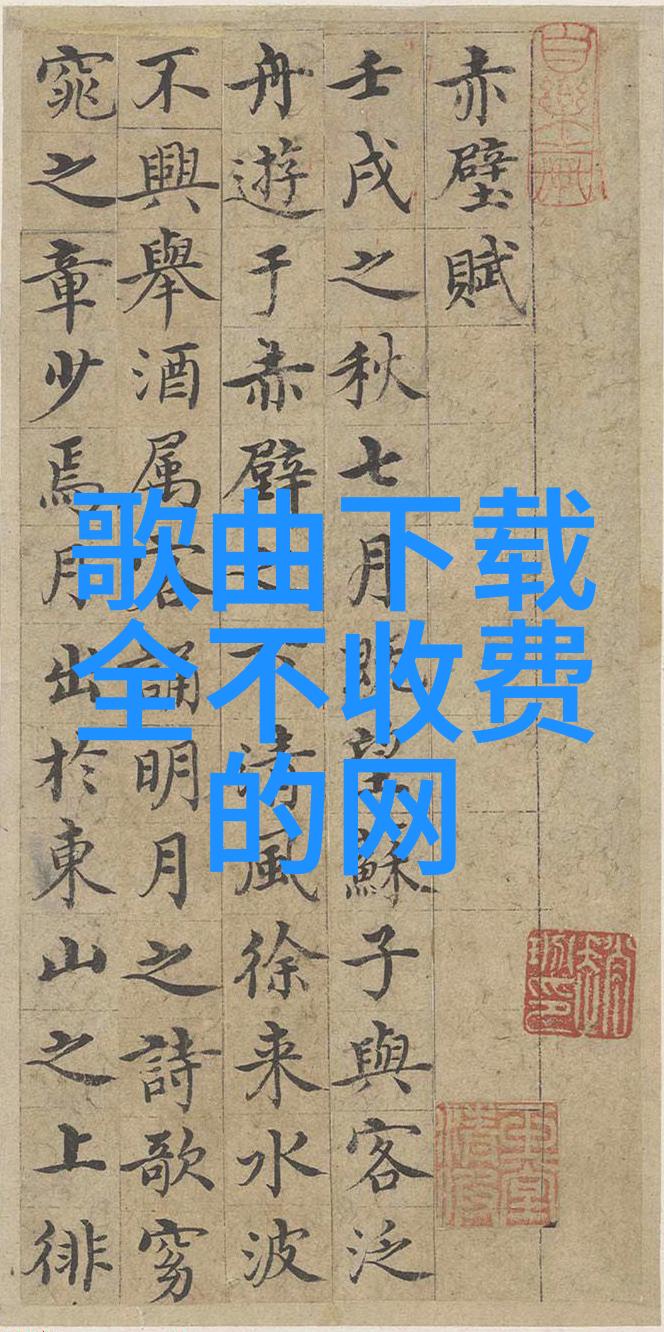 赤壁賦
壬戌之秋七月既望蘇子與客泛
舟遊于赤壁之下清風徐来水波
不興舉酒属客誦明月之詩歌窈
窕之章少焉月出於東山之上徘
歌曲下载
全不收费
的网